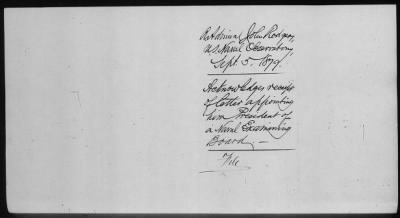 R. Admiral John Rodgers,
U.S. Naval Observatory,
Sept. 5. 1879.
Acknowledges receipt
of letter appointing
him President of
a Naval Examining
Board. —
File